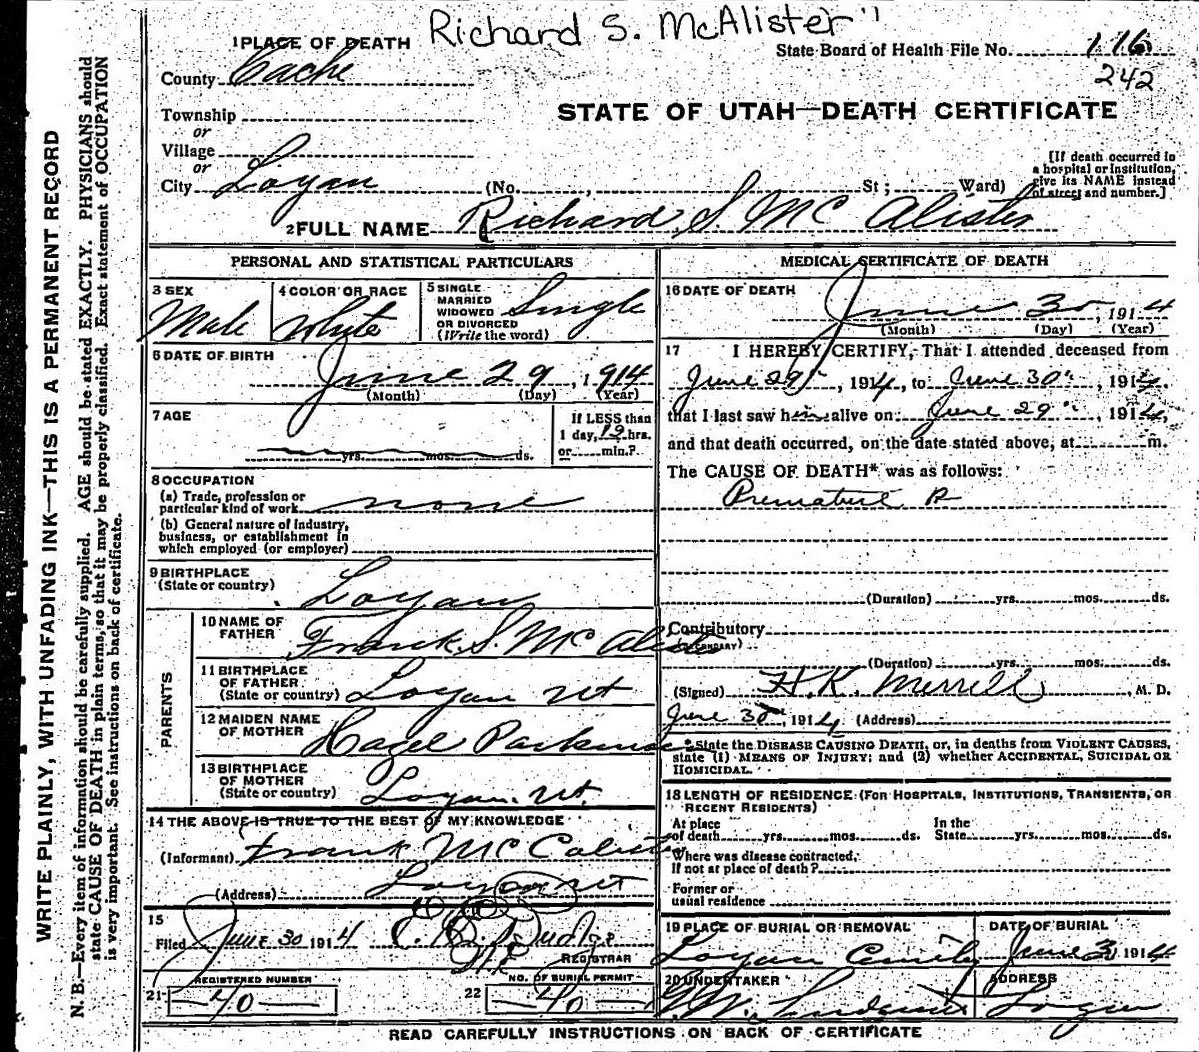 Richard S. McAlister
1 PLACE OF DEATH
State Board of Health File No. 116
County Cache
242
STATE OF UTAH—DEATH CERTIFICATE
Township
or
Village
or
City Logan (No. , St; Ward)
[If death occurred in a hospital or institution, give its NAME instead of street and number.]
2 FULL NAME Richard S. Mc Alister
PERSONAL AND STATISTICAL PARTICULARS
3 SEX
Male
4 COLOR OR RACE
White
5 SINGLE
MARRIED
WIDOWED
OR DIVORCED
(Write the word)
Single
6 DATE OF BIRTH
June 29, 1914
(Month) (Day) (Year)
7 AGE
yrs. mos. ds.
If LESS than
1 day, 12 hrs.
or min.?
8 OCCUPATION
(a) Trade, profession or
particular kind of work none
(b) General nature of industry,
business, or establishment in
which employed (or employer)
9 BIRTHPLACE
(State or country)
Logan
PARENTS
10 NAME OF
FATHER
Frank S. Mc Alister
11 BIRTHPLACE
OF FATHER
(State or country) Logan Ut
12 MAIDEN NAME
OF MOTHER
Hazel Parkinson
13 BIRTHPLACE
OF MOTHER
(State or country) Logan. Ut.
14 THE ABOVE IS TRUE TO THE BEST OF MY KNOWLEDGE
(Informant) Frank Mc Calister
(Address) Logan Ut
15
Filed June 30 1914
REGISTRAR
REGISTERED NUMBER
21 40
NO. OF BURIAL PERMIT
22 40
MEDICAL CERTIFICATE OF DEATH
16 DATE OF DEATH
June 30, 1914
(Month) (Day) (Year)
17 I HEREBY CERTIFY, That I attended deceased from
June 29, 1914, to June 30, 1914,
that I last saw him alive on June 29, 1914,
and that death occurred, on the date stated above, at m.
The CAUSE OF DEATH* was as follows:
Premature B
(Duration) yrs. mos. ds.
Contributory
(SECONDARY)
(Duration) yrs. mos. ds.
(Signed) H.K. Merrill, M. D.
June 30, 1914 (Address)
*State the DISEASE CAUSING DEATH, or, in deaths from VIOLENT CAUSES,
state (1) MEANS OF INJURY; and (2) whether ACCIDENTAL, SUICIDAL OR
HOMICIDAL.
18 LENGTH OF RESIDENCE (FOR HOSPITALS, INSTITUTIONS, TRANSIENTS, OR
RECENT RESIDENTS)
At place
of death yrs. mos. ds.
In the
State yrs. mos. ds.
Where was disease contracted,
If not at place of death?
Former or
usual residence
19 PLACE OF BURIAL OR REMOVAL
Logan
DATE OF BURIAL
June 1914
20 UNDERTAKER
ADDRESS
Logan
READ CAREFULLY INSTRUCTIONS ON BACK OF CERTIFICATE
WRITE PLAINLY, WITH UNFADING INK—THIS IS A PERMANENT RECORD
N. B.—Every item of information should be carefully supplied. AGE should be stated EXACTLY. PHYSICIANS should
state CAUSE OF DEATH in plain terms, so that it may be properly classified. Exact statement of OCCUPATION
is very important. See instructions on back of certificate.